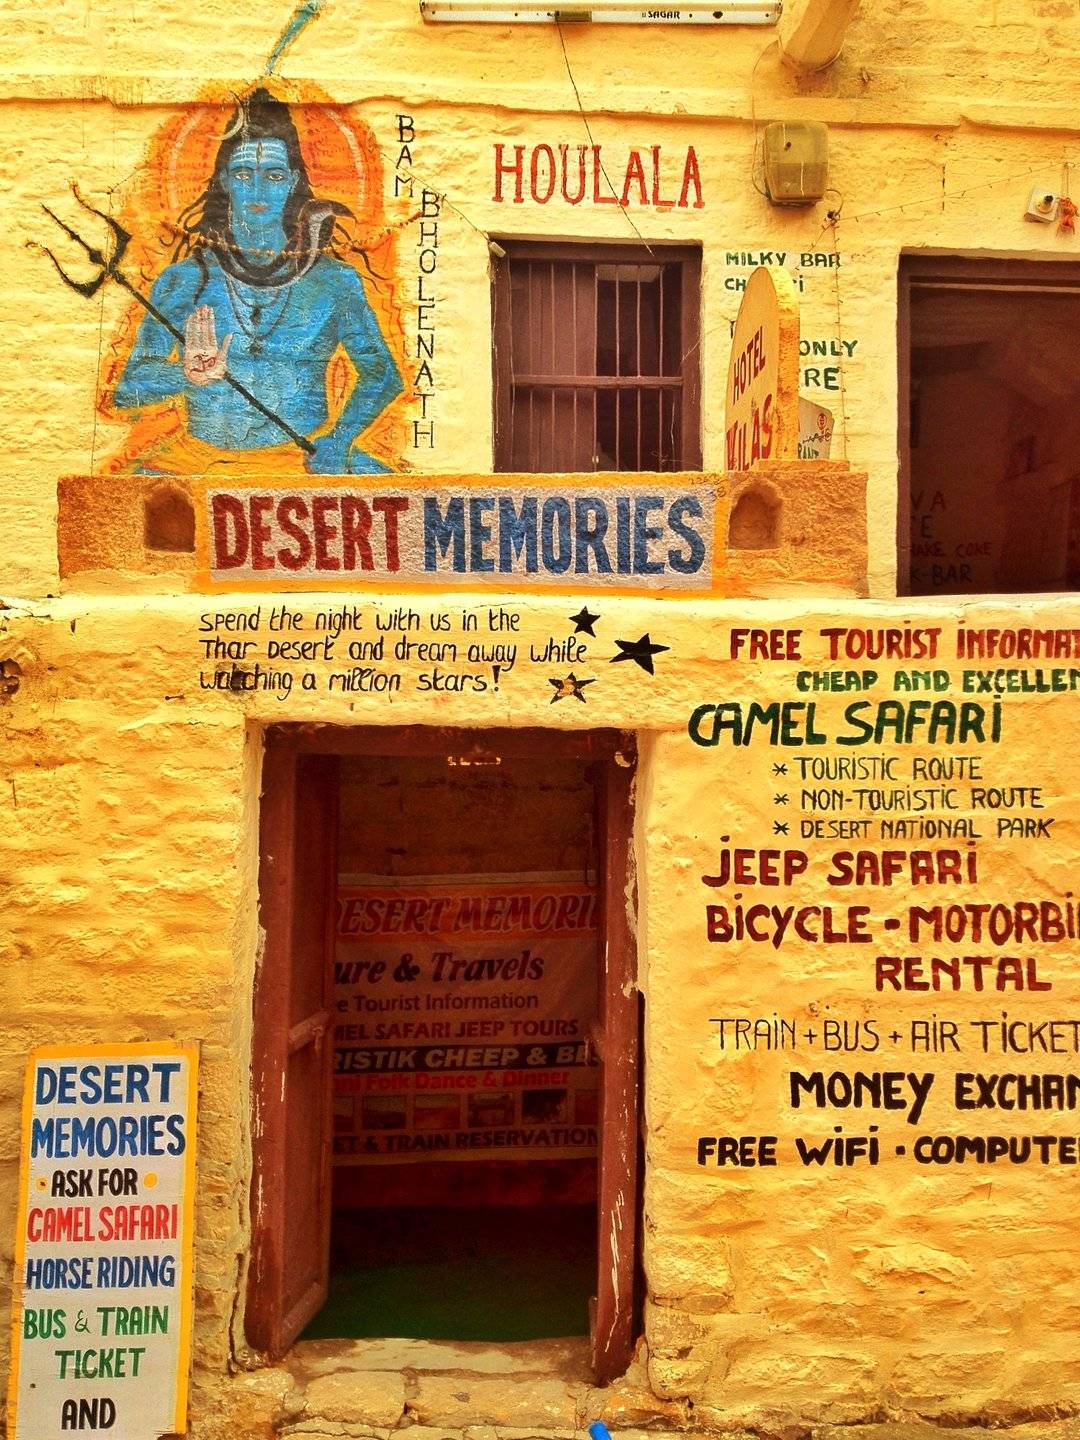 SAGAR
BAM
BHOLENATH
HOULALA
MILKY BAR
ONLY
RE
HOTEL
VILAS
DESERT MEMORIES
Spend the night with us in the
Thar Desert and dream away while
watching a million stars!
VA
COKE
K-BAR
FREE TOURIST INFORMAT
CHEAP AND EXCELLEN
CAMEL SAFARI
* TOURISTIC ROUTE
* NON-TOURISTIC ROUTE
* DESERT NATIONAL PARK
JEEP SAFARI
BICYCLE - MOTORBI
RENTAL
TRAIN + BUS + AIR TICKET
MONEY EXCHAN
FREE WIFI • COMPUTE
DESERT MEMORI
ure & Travels
e Tourist Information
MEL SAFARI JEEP TOURS
RISTIK CHEEP & BE
ani Folk Dance & Dinner
ET & TRAIN RESERVATION
DESERT
MEMORIES
• ASK FOR •
CAMEL SAFARI
HORSE RIDING
BUS & TRAIN
TICKET
AND